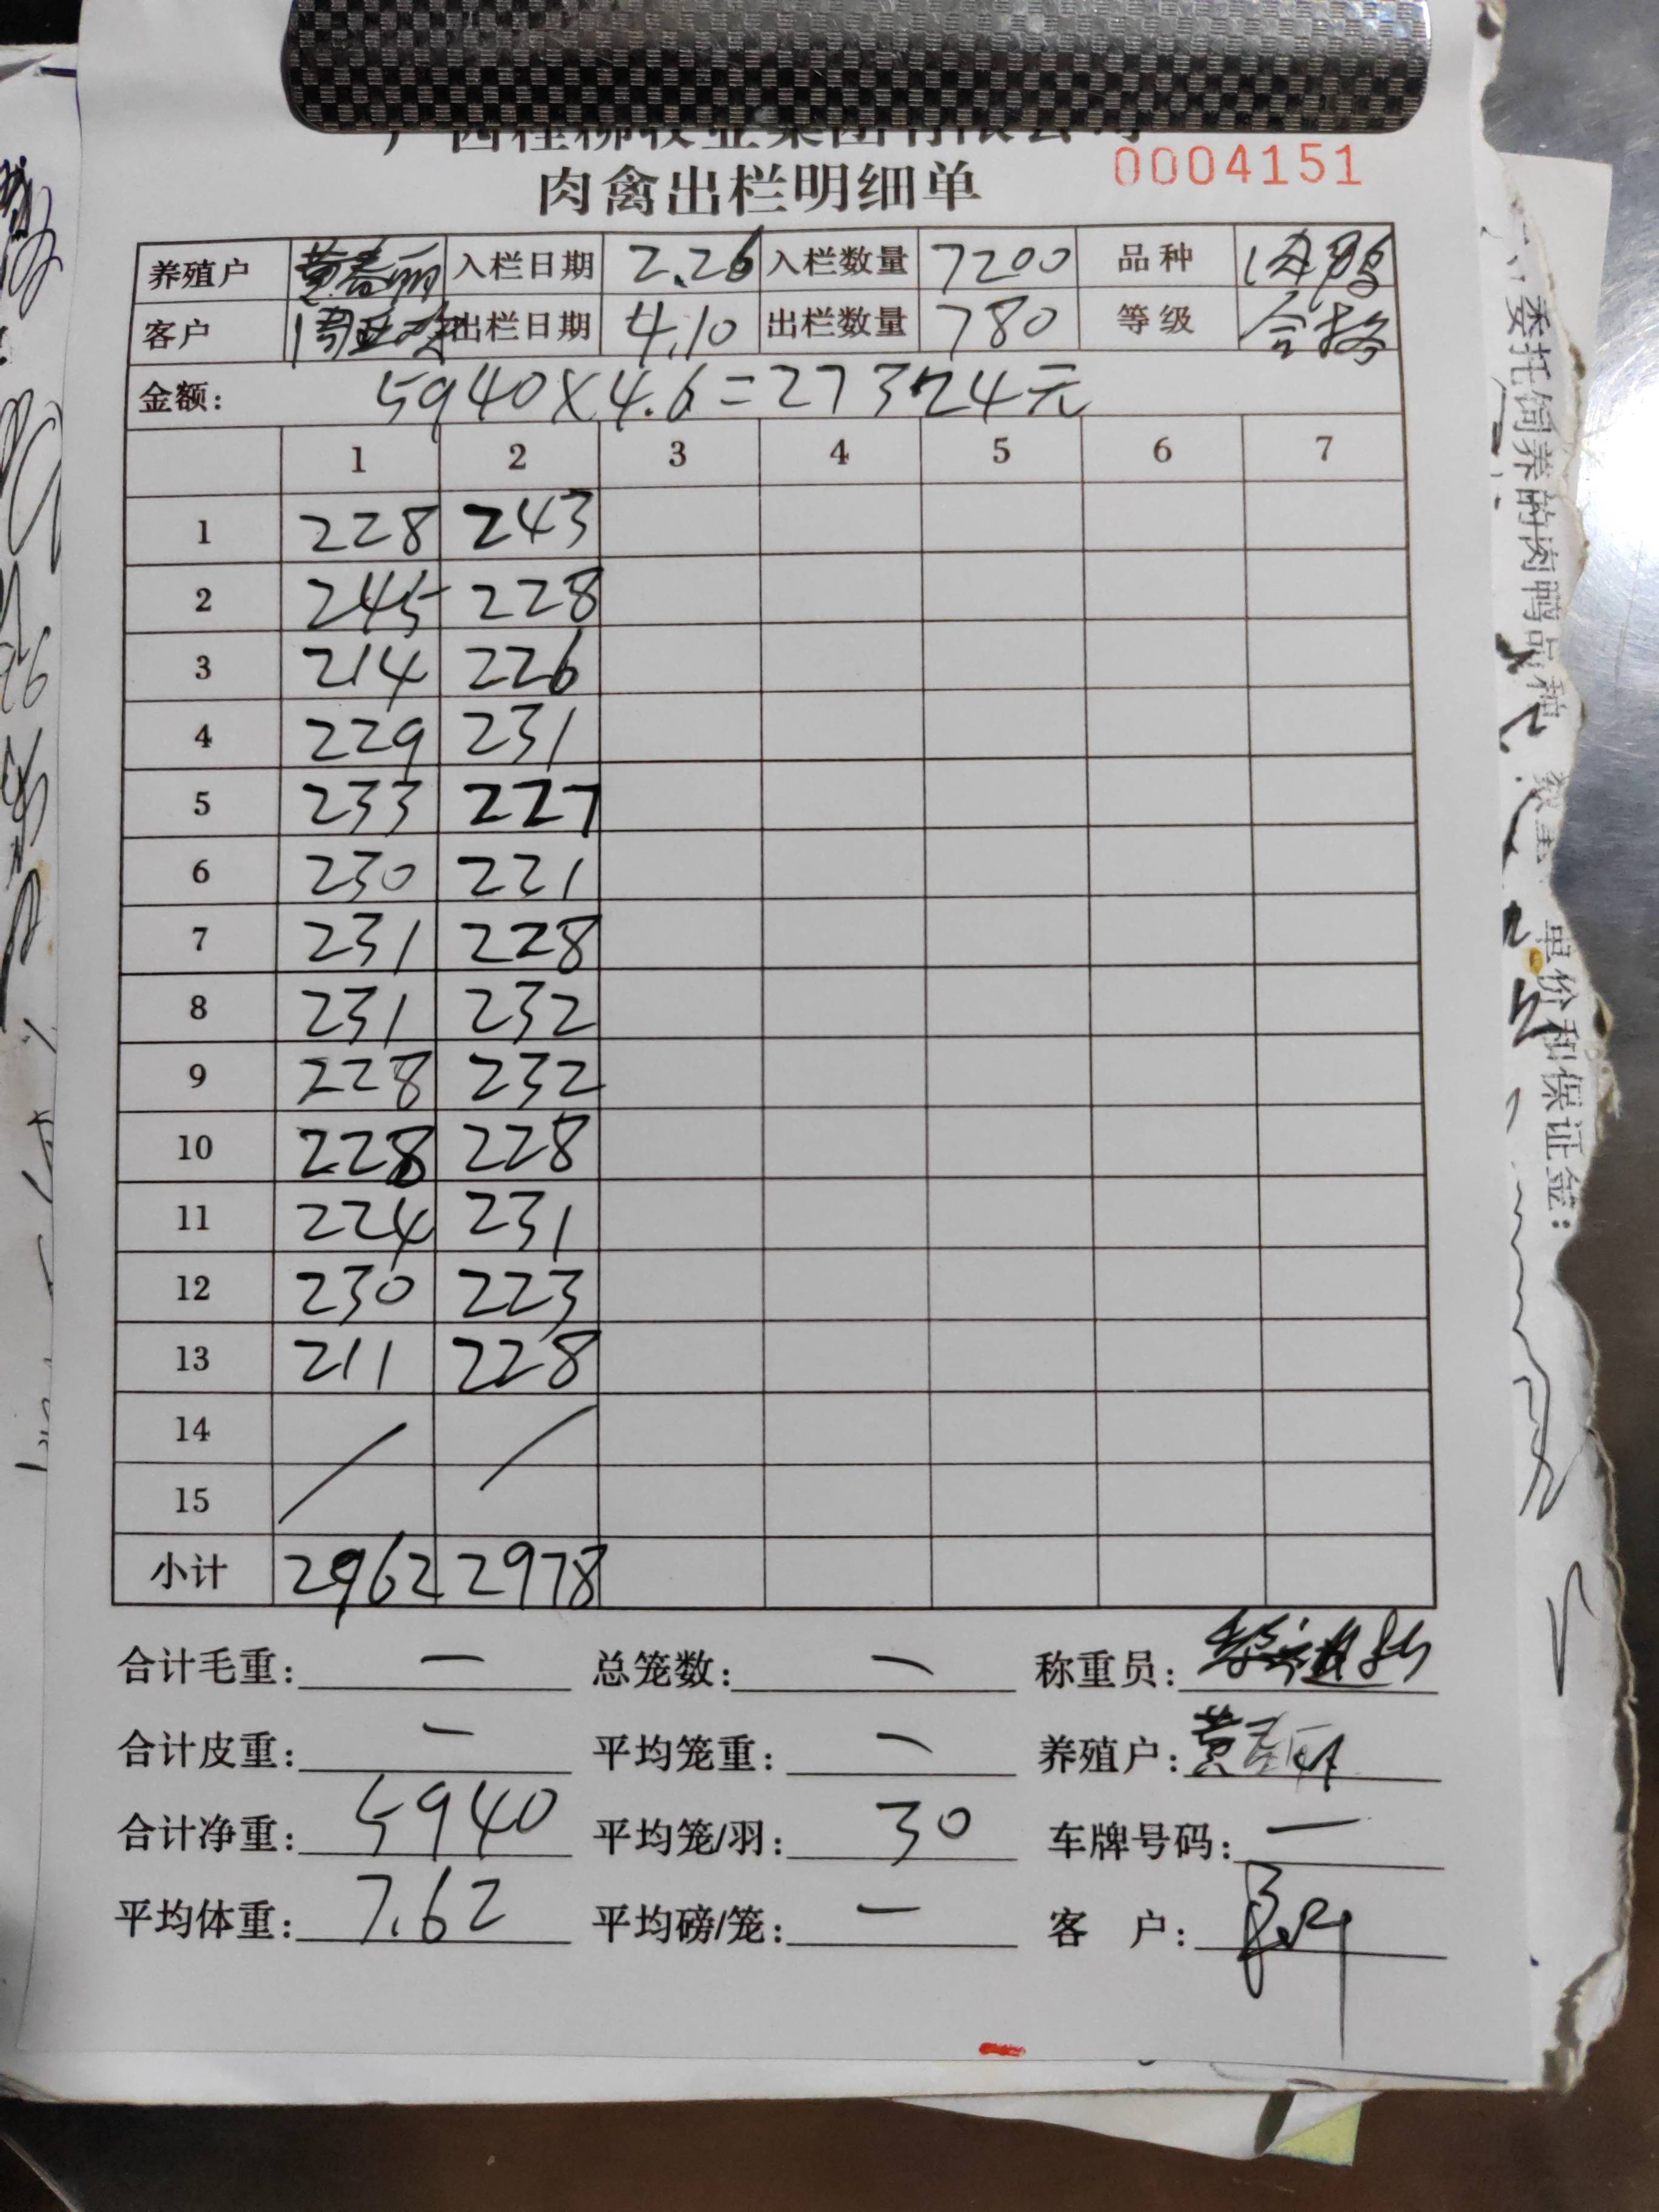 广西桂柳牧业集团有限公司
肉禽出栏明细单 0004151
养殖户 黄春丽 入栏日期 2.26 入栏数量 7200 品种
客户 出栏日期 4.10 出栏数量 780 等级 合格
金额: 5940×4.6=27324元
1 2 3 4 5 6 7
1 228 243
2 245 228
3 214 226
4 229 231
5 233 227
6 230 221
7 231 228
8 231 232
9 228 232
10 228 228
11 224 231
12 230 223
13 211 228
14 /
15 /
小计 2962 2978
合计毛重: — 总笼数: — 称重员:
合计皮重: — 平均笼重: — 养殖户: 黄春丽
合计净重: 5940 平均笼/羽: 30 车牌号码: —
平均体重: 7.62 平均磅/笼: — 客 户:
委托饲养的肉鸭品种
单价和保证金: